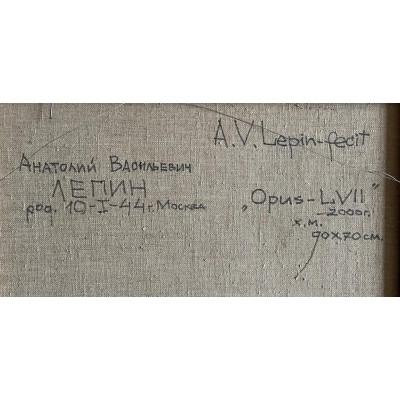 A.V. Lepin-fecit
Анатолий Васильевич
ЛЕПИН
род. 10-I-44 г. Москва
„Opus-LVII"
2000г.
х.м.
90х70см.